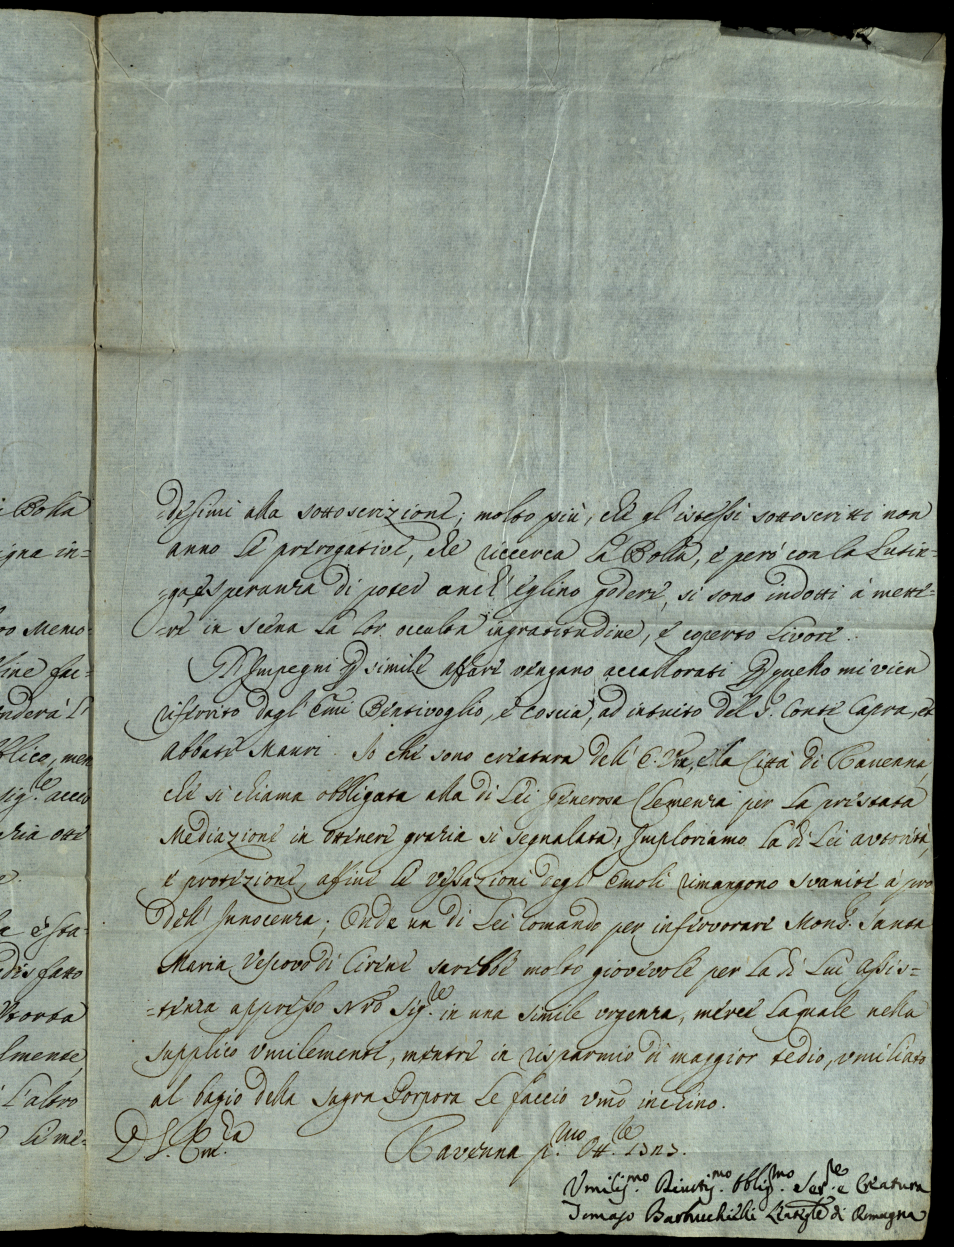 i Bolla
igna in=
ro Memo=
fine fac=
enderà l'
blico, men
Sig.re accio
zia otti
e.
a è sta=
dis fatto
lmente
l'altro
le me=
desimi alla sottoscrizione; molto più, che gl'istessi sottoscritti non
anno le prerogative, che ricerca la Bolla, e però con la Lusin=
=ga, e speranza di poter anch'eglino godere, si sono indotti à mette=
=re in scena la lor occulta ingratitudine, e coperto livore.
Gl'Impegni p simile affare vengano accallorati p quello mi vien
riferito dagl'Emi Bentivoglio, e Coscia, ad intuito del S. Conte Capra, et
Abbate Mauri. Io che sono creatura dell'E. Vra, e la Città di Ravenna,
che si chiama obbligata alla di Lei generosa Clemenza per la prestata
Mediazione in ottenere grazia si segnalata, Imploriamo la di Lei autorità,
e protezione, affine le vessazioni degl'Emoli rimangono svanite à pro
dell'Innocenza; Onde un di Lei comando per infervorare Mons. Santa
Maria Vescovo di Cirene sarebbe molto giovevole per la di Lui Assis=
=tenza appresso Nro Sig.re in una simile urgenza, mercè la quale nella
supplico umilemente, mentre in risparmio di maggior tedio, umiliato
al bagio della Sagra Porpora le faccio umo inchino.
D. V. Em.za Ravenna p.mo Ott.re 1727.
Umiliss.mo Devotiss.mo Obblig.mo Ser.re e Creatura
Tomaso di Romagna